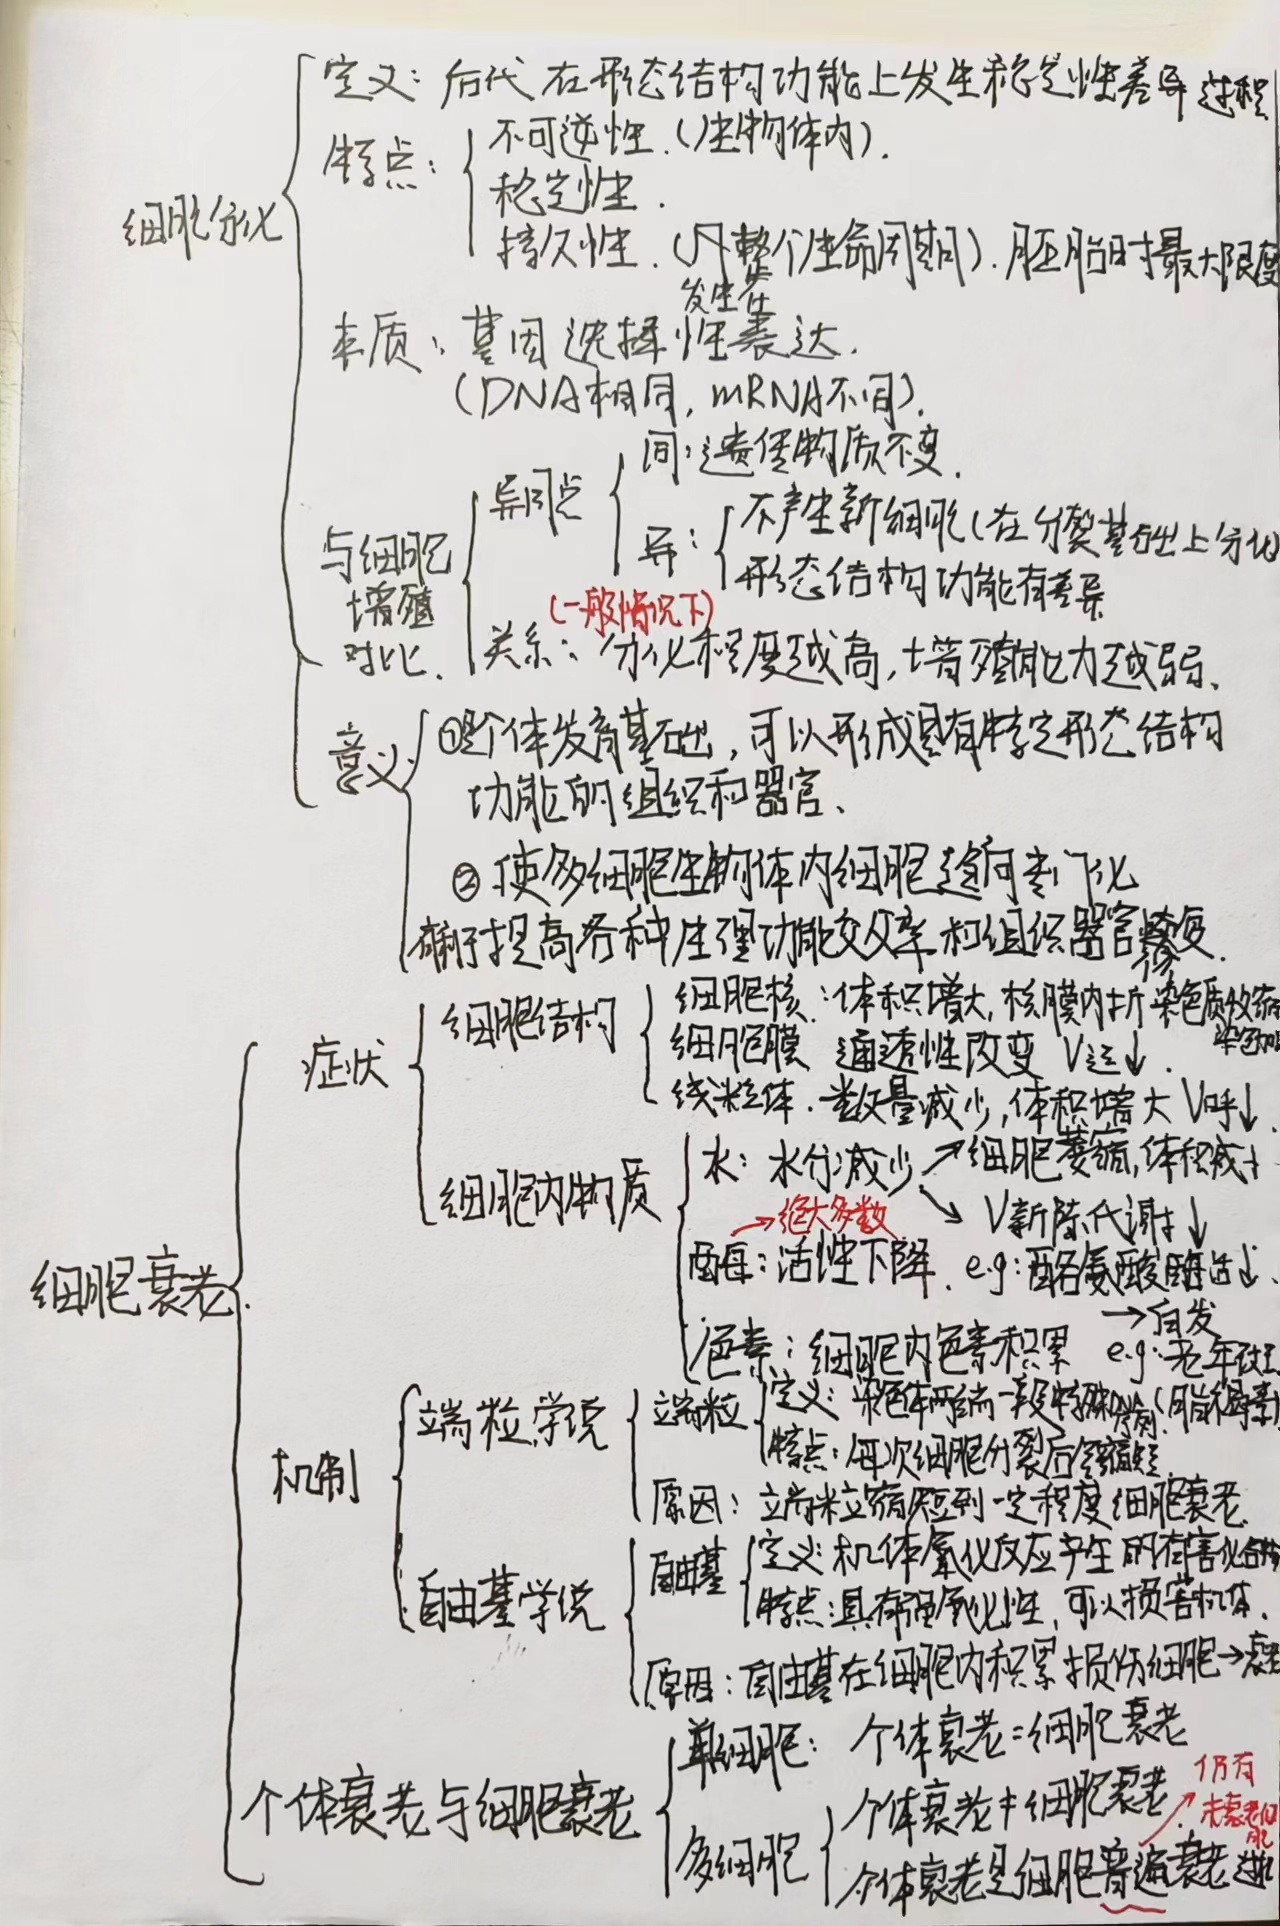 细胞分化
定义：后代在形态结构功能上发生稳定性差异过程
特点：
不可逆性.(生物体内).
稳定性.
持久性.(整个生命周期).胚胎时最大限度
发生在
本质：基因选择性表达.
(DNA相同,mRNA不同).
与细胞
增殖
对比.
异同点
同：遗传物质不变.
异：
不产生新细胞(在分裂基础上分化
形态结构功能有差异
(一般情况下)
关系：分化程度越高,增殖能力越弱.
意义.
①是个体发育基础,可以形成具有特定形态结构
功能的组织和器官、
②使多细胞生物体内细胞趋向专门化
有利于提高各种生理功能效率和组织器官修复.
细胞衰老.
症状
细胞结构
细胞核：体积增大,核膜内折 染色质收缩
染色加
细胞膜 通透性改变 V运↓.
线粒体.数量减少,体积增大 V呼↓.
细胞内物质
水：水分减少↗细胞萎缩,体积减小
↘V新陈代谢↓
→绝大多数
酶：活性下降. e.g:酪氨酸酶活↓.
→白发
色素：细胞内色素积累 e.g:老年
机制
端粒学说
端粒
定义：染色体两端一段特殊
特点：每次细胞分裂后会缩短.
原因：端粒缩短到一定程度细胞衰老.
自由基学说
自由基
定义：机体氧化反应产生的有害化合物
特点：具有强氧化性,可以损害机体.
原因：自由基在细胞内积累损伤细胞→衰老
个体衰老与细胞衰老
单细胞：个体衰老=细胞衰老
多细胞
个体衰老≠细胞衰老
仍有
未衰老细
胞
个体衰老是细胞普遍衰老过程